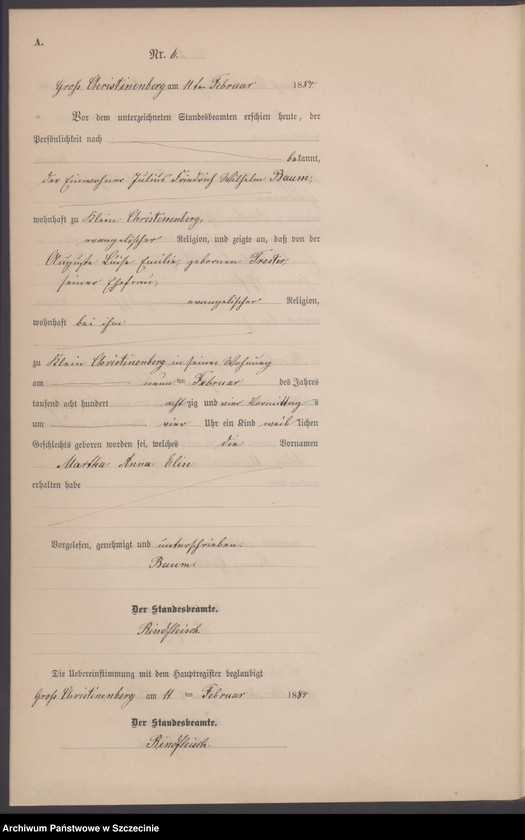 A.
Nr. 6.
Groß Christinenberg am 11ten Februar 1884
Vor dem unterzeichneten Standesbeamten erschien heute, der
Persönlichkeit nach
bekannt,
der Einwohner Julius Friedrich Wilhelm Baum,
wohnhaft zu Klein Christinenberg,
evangelischer Religion, und zeigte an, daß von der
Auguste Luise Emilie, gebornen
seiner Ehefrau,
evangelischer Religion,
wohnhaft bei ihm
zu Klein Christinenberg in seiner Wohnung
am neunten Februar des Jahres
tausend acht hundert achtzig und vier Vormittags
um vier Uhr ein Kind weiblichen
Geschlechts geboren worden sei, welches die Vornamen
Martha Anna Elise
erhalten habe
Vorgelesen, genehmigt und unterschrieben.
Baum.
Der Standesbeamte.
Rindfleisch.
Die Uebereinstimmung mit dem Hauptregister beglaubigt
Groß Christinenberg am 11ten Februar 1884
Der Standesbeamte.
Rindfleisch.
Archiwum Państwowe w Szczecinie